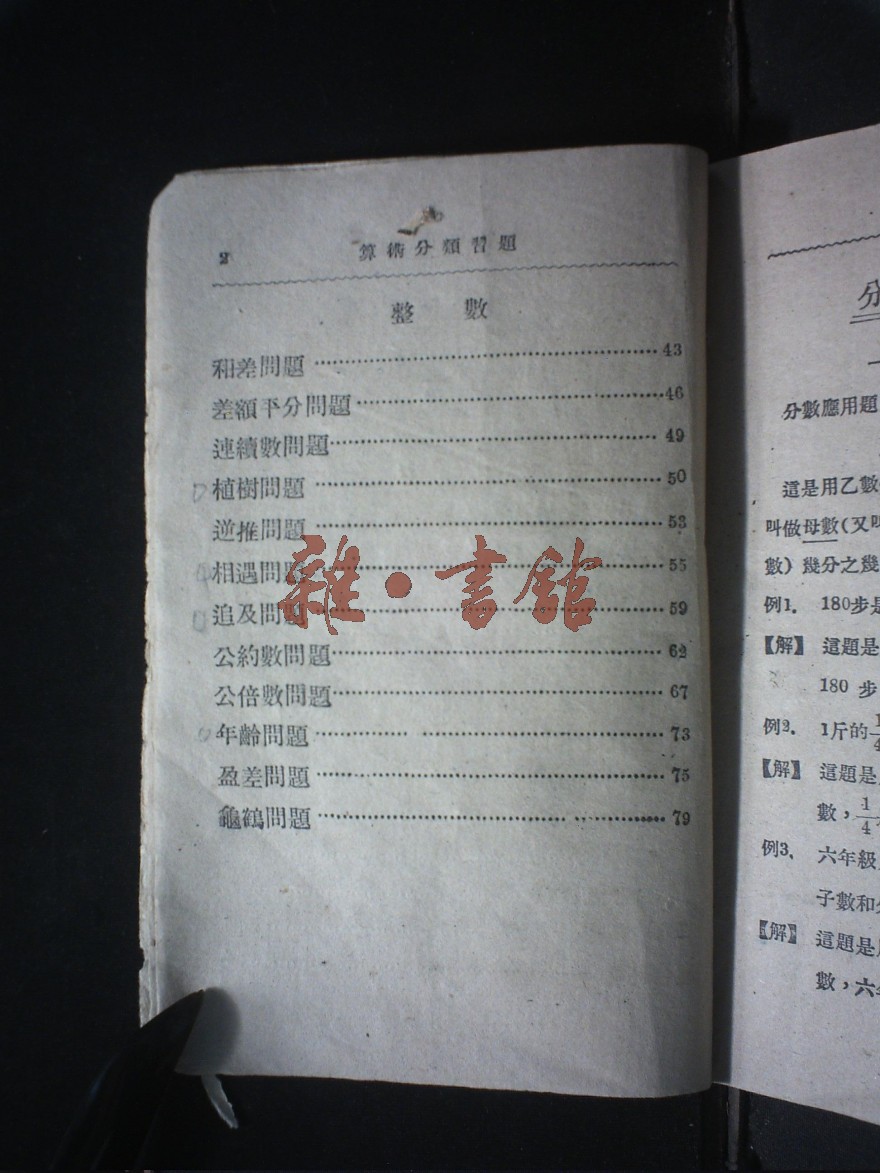 2 算術分類習題
整 數
和差問題 43
差額平分問題 46
連續數問題 49
植樹問題 50
逆推問題 53
相遇問題 55
追及問題 59
公約數問題 62
公倍數問題 67
年齡問題 73
盈差問題 75
龜鶴問題 79
雜·書館
分
分數應用題
這是用乙數
叫做母數(又叫
數)幾分之幾
例1. 180步是
【解】 這題是
180 步
例2. 1斤的1/4
【解】 這題是
數，1/4
例3. 六年級
子數和
【解】 這題是
數，六